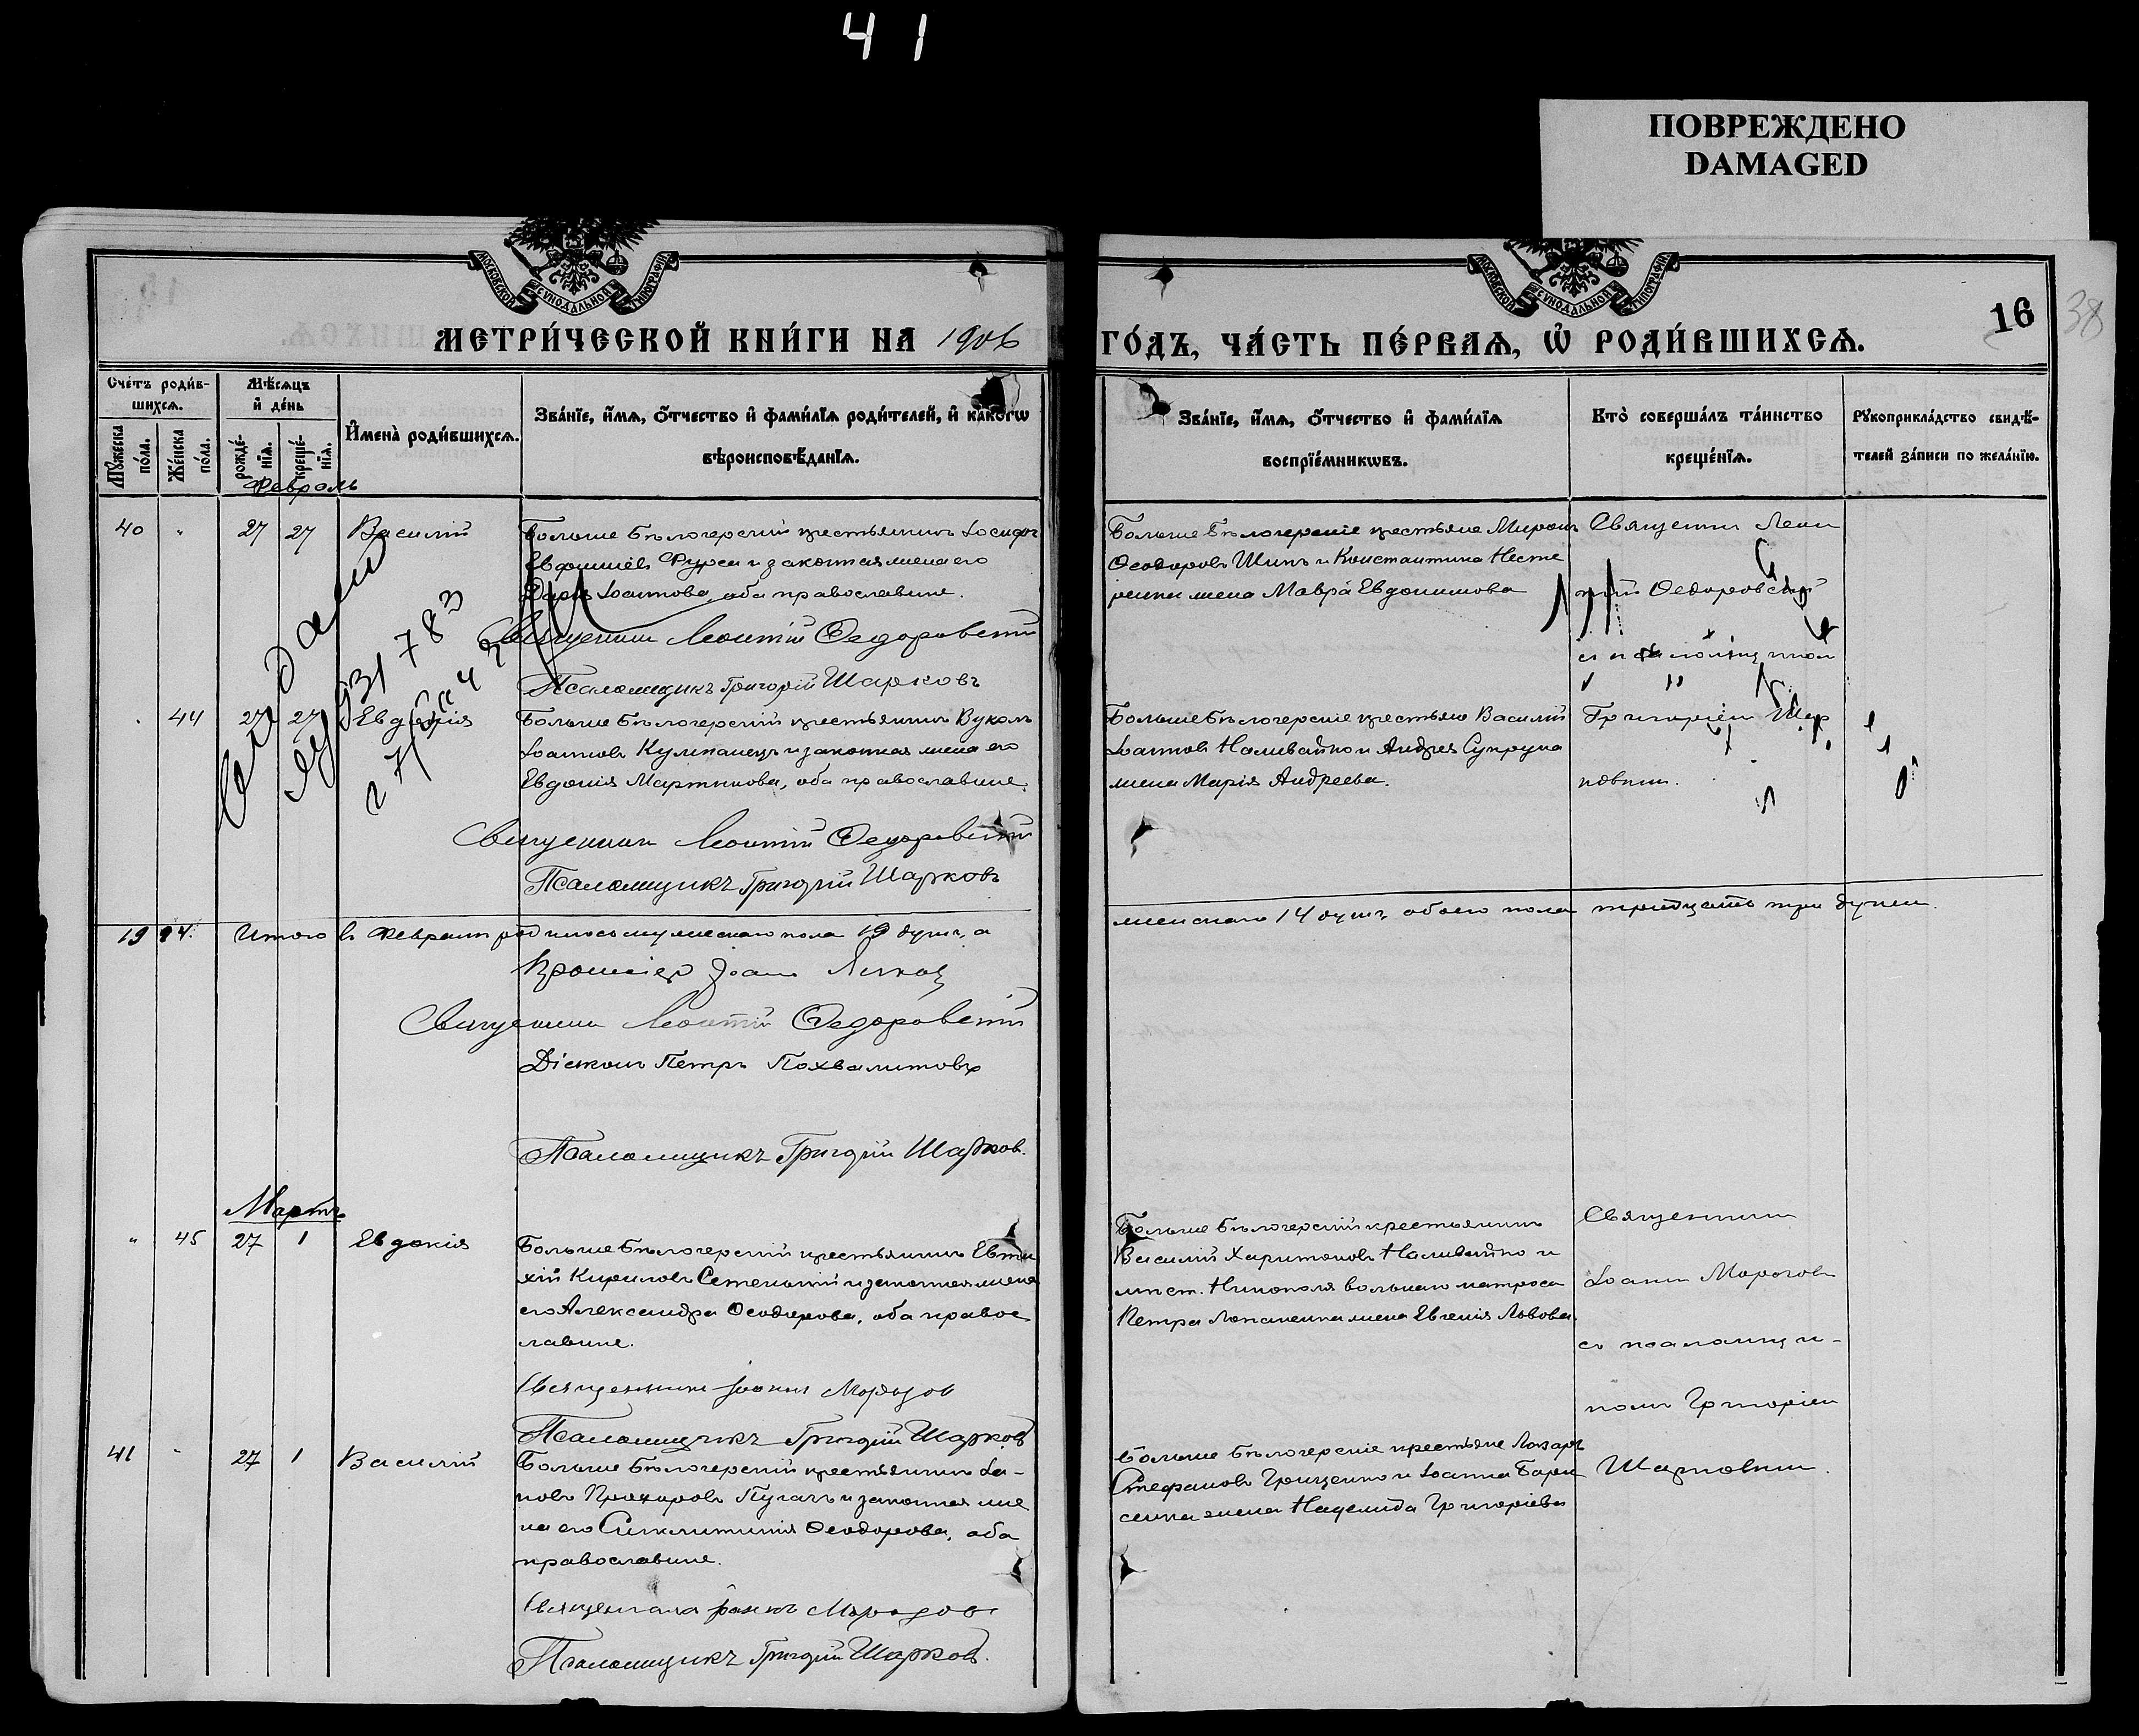 41
ПОВРЕЖДЕНО
DAMAGED
МОСКОВСКОЙ СѴНОДАЛЬНОЙ ТИПОГРАФІИ
МОСКОВСКОЙ СѴНОДАЛЬНОЙ ТИПОГРАФІИ
16
38
МЕТРИ́ЧЕСКОЙ КНИ́ГИ НА 1906 ГО́ДЪ, ЧА́СТЬ ПЕ́РВАѦ, Ѡ҆ РОДИ́ВШИХСѦ.
Сче́тъ роди́в-
шихсѧ.
Мѣ́сѧцъ
и҆ де́нь
Мꙋ́жеска
по́ла.
Же́нска
по́ла.
рожде́-
нїѧ.
креще́-
нїѧ.
И҆мена̀ роди́вшихсѧ.
Зва́нїе, и҆́мѧ, ѻ҆́тчество и҆ фами́лїѧ роди́телей, и҆ како́гѡ
вѣроисповѣ́данїѧ.
Зва́нїе, и҆́мѧ, ѻ҆́тчество и҆ фами́лїѧ
воспрїе́мникѡвъ.
Кто̀ соверша́лъ та́инство
креще́нїѧ.
Рꙋкоприкла́дство свидѣ́-
телей за́писи по жела́нїю.
Февраль
40 " 27 27 Василій
Больше Бѣлозерскій крестьянинъ Іосифъ
Евфиміевъ Фурса и законная жена его
Дарія Іоаннова, оба православные.
Священникъ Леонтій Федоровскій
Псаломщикъ Григорій Шарковъ
Больше Бѣлозерскіе крестьяне Миронъ
Ѳеодоровъ и Константина Несте
ренка жена Мавра Евдокимова
Священникъ Леон
тій Федоровскій
съ псаломщикомъ
Григоріемъ Шар
ковымъ.
44 27 27 Евдокія
Больше Бѣлозерскій крестьянинъ Вуколъ
Іоанновъ и законная жена его
Евдокія Мартынова, оба православные.
Священникъ Леонтій Федоровскій
Псаломщикъ Григорій Шарковъ
Больше Бѣлозерскіе крестьяне Василій
Іоанновъ Наливайко и Андрея Супруна
жена Марія Андреева.
19 14. Итого въ Февралѣ родилось мужескаго пола 19 душъ, а
женскаго 14 душъ, обоего пола тридцать три души.
Іоаннъ
Священникъ Леонтій Федоровскій
Діаконъ Петръ Похвалитовъ
Псаломщикъ Григорій Шарковъ.
Мартъ
" 45 27 1 Евдокія
Больше Бѣлозерскій крестьянинъ Евти
хій Кириловъ и законная жена
его Александра Ѳеодорова, оба правос
лавные.
Священникъ Іоаннъ Морозов
Псаломщикъ Григорій Шарковъ
Больше Бѣлозерскій крестьянинъ
Василій Харитоновъ Наливайко и
мѣст. Никополя вольнаго матроса
Петра жена Евгенія Львова.
Священникъ
Іоаннъ Морозовъ
съ псаломщи-
комъ Григоріем
Шарковым.
41 " 27 1 Василій
Больше Бѣлозерскій крестьянинъ Іа-
ковъ Прохоровъ Пугачъ и законная же
на его Синклитикія Ѳеодорова, оба
православные.
Священникъ Іоаннъ Морозовъ
Псаломщикъ Григорій Шарков.
Больше Бѣлозерскіе крестьяне Лазарь
Стефановъ Грищенко и Іоанна Бори
сенка жена Надежда Григоріева